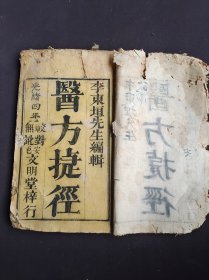 李東垣先生編輯
醫方捷徑
光緒四年
校對無訛
文明堂梓行
醫方捷徑